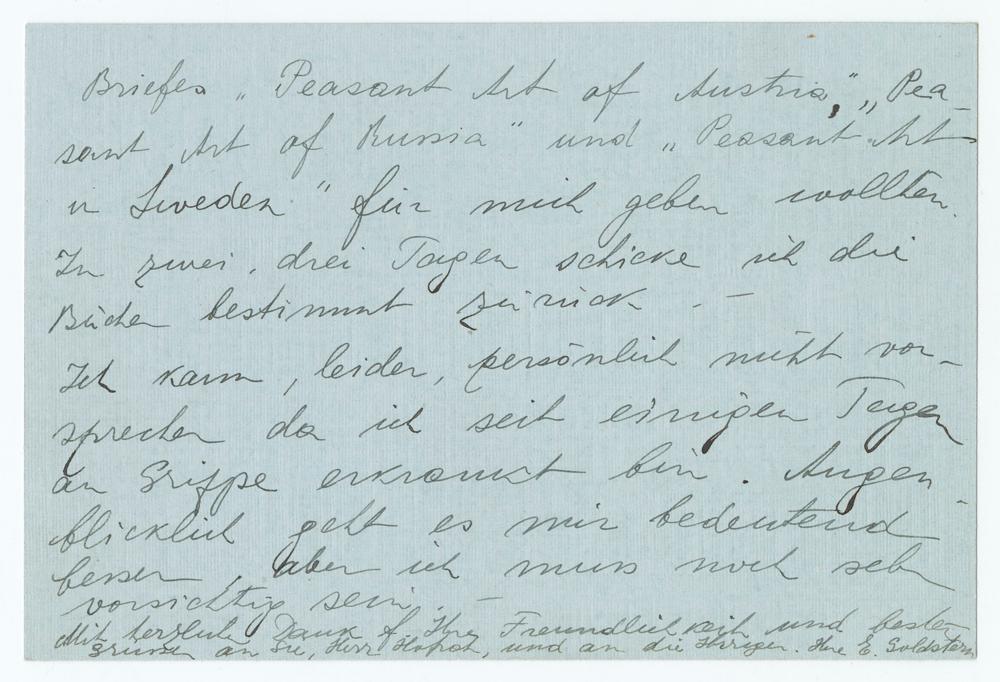 Briefes „Peasant Art of Austria", „Pea-
sant Art of Russia" und „Peasant Art
in Sweden" für mich geben wollten.
In zwei, drei Tagen schicke ich die
Bücher bestimmt zurück. –
Ich kann, leider, persönlich nicht vor-
sprechen da ich seit einigen Tagen
an Grippe erkrankt bin. Augen-
blicklich geht es mir bedeutend
besser, aber ich muss noch sehr
vorsichtig sein. –
Mit herzlichen Dank f. Ihre Freundlichkeit und besten
Grüssen an Sie, Herr Hofrat, und an die Ihrigen. Ihre E. Goldstern